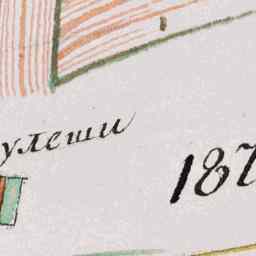 улеши
187